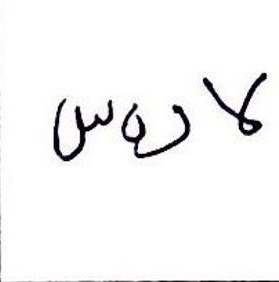 لاروس